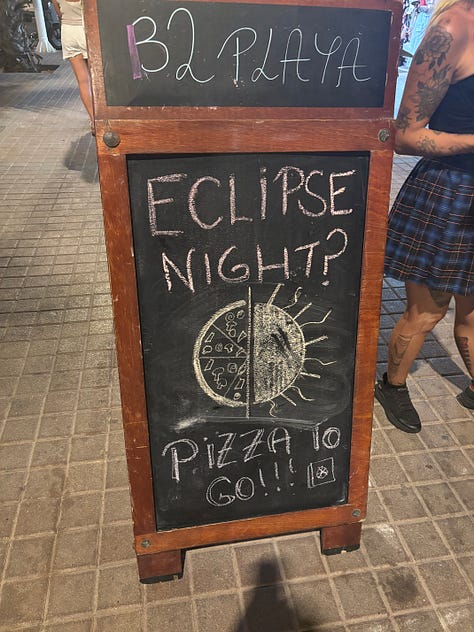 B2 PLAYA
ECLiPSE
NiGHT?
PiZZA TO
GO!!!